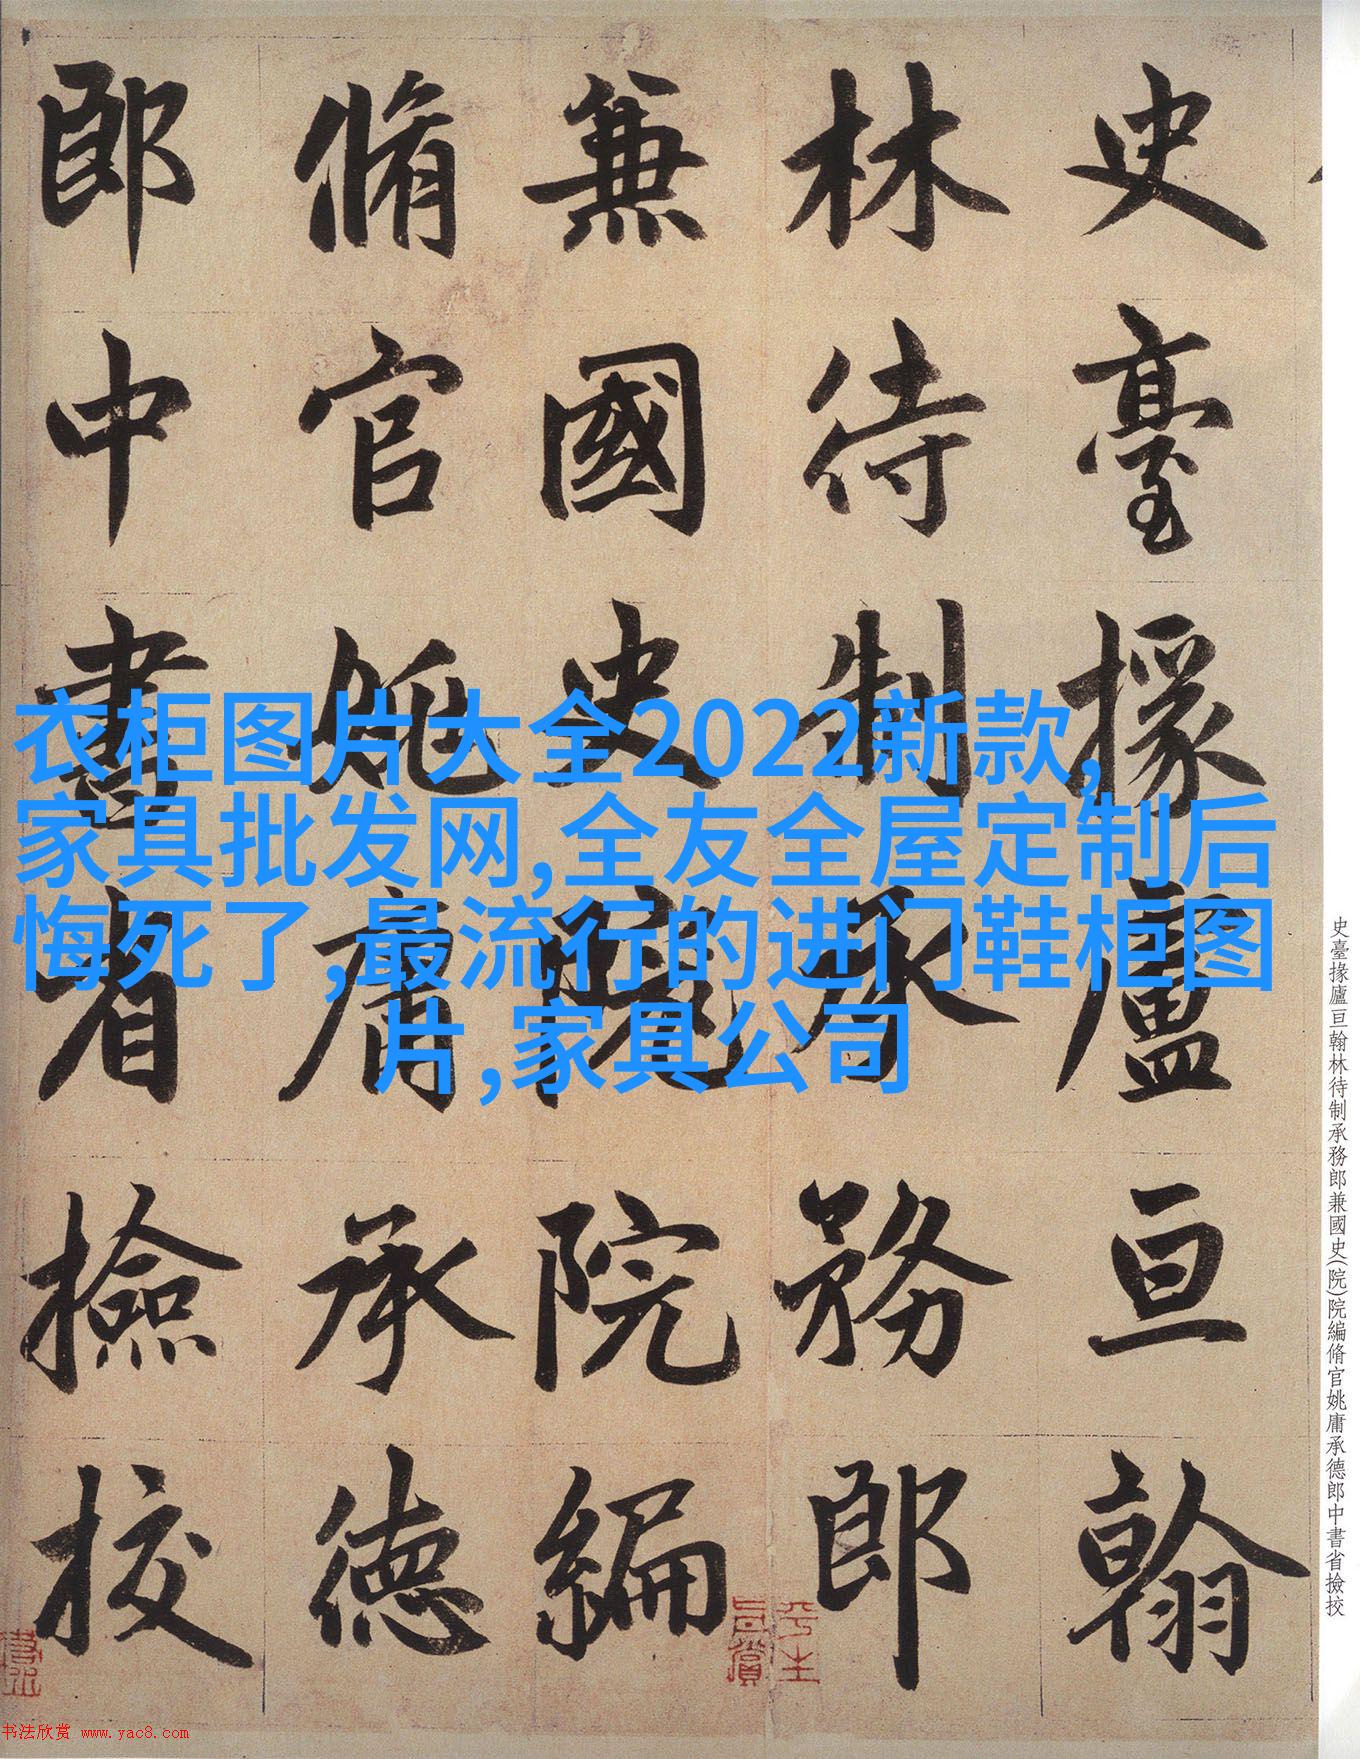 史臺掾盧亘翰
林待制承務郎
兼國史院院編
脩官姚庸承德
郎中書省撿挍
衣柜图片大全2022新款,
家具批发网,全友全屋定制后
悔死了,最流行的进门鞋柜图
片,家具公司
史臺掾廬亘翰林待制承務郎兼國史(院)院編脩官姚庸承德郎中書省撿挍
书法欣赏 www.yac8.com